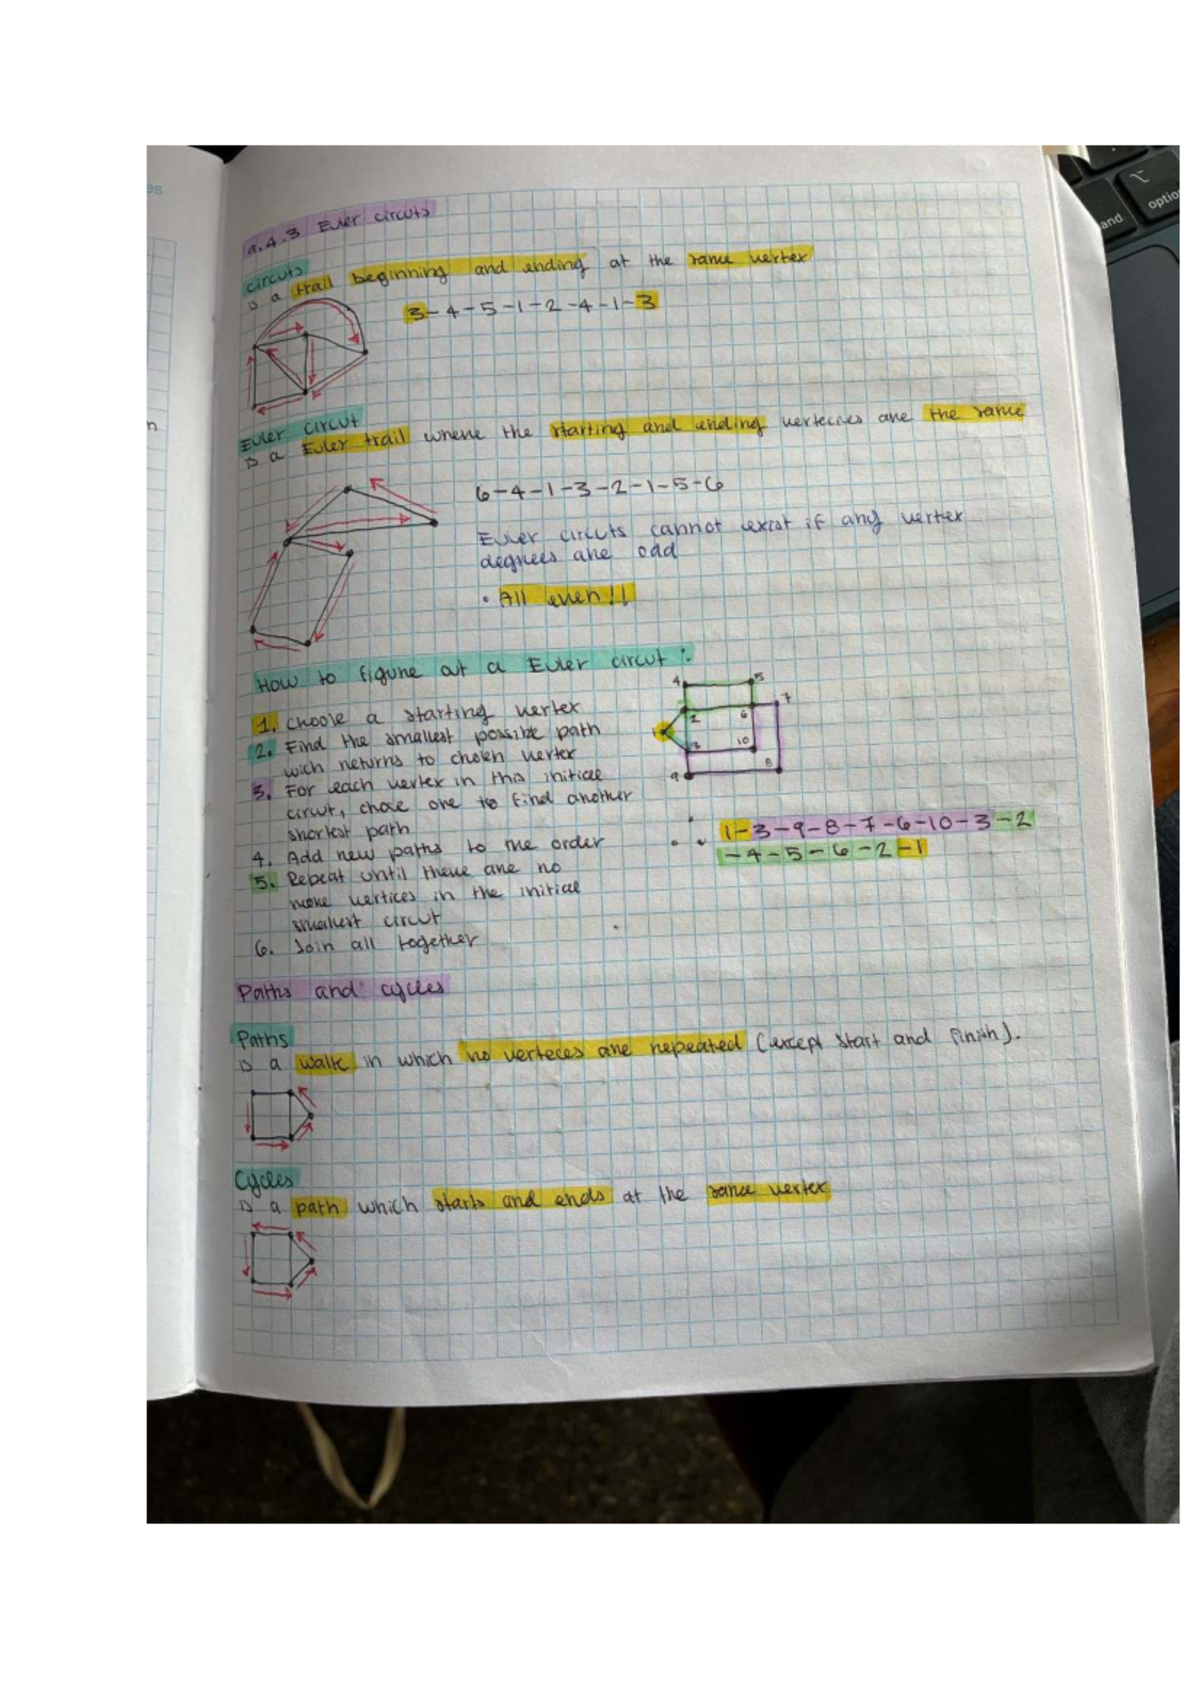 9.4.3 Euler circuts
circuts
is a trail beginning and ending at the same vertex
3-4-5-1-2-4-1-3
Euler circut
is a Euler trail where the starting and ending vertecies are the same
6-4-1-3-2-1-5-6
Euler circuts cannot exist if any vertex
degrees are odd
• All even!!
How to figure out a Euler circut:
1. Choose a starting vertex
2. Find the smallest possible path
wich returns to chosen vertex
3. For each vertex in this initial
circut, chose one to find another
shortest path
4. Add new paths to the order
5. Repeat until there are no
more vertices in the initial
smallest circut
6. Join all together
4 5
7
2 6
3 10
8
9
∴ 1-3-9-8-7-6-10-3-2
-4-5-6-2-1
Paths and cycles
Paths
is a walk in which no verteces are repeated (except start and finish).
Cycles
is a path which starts and ends at the same vertex
and
option